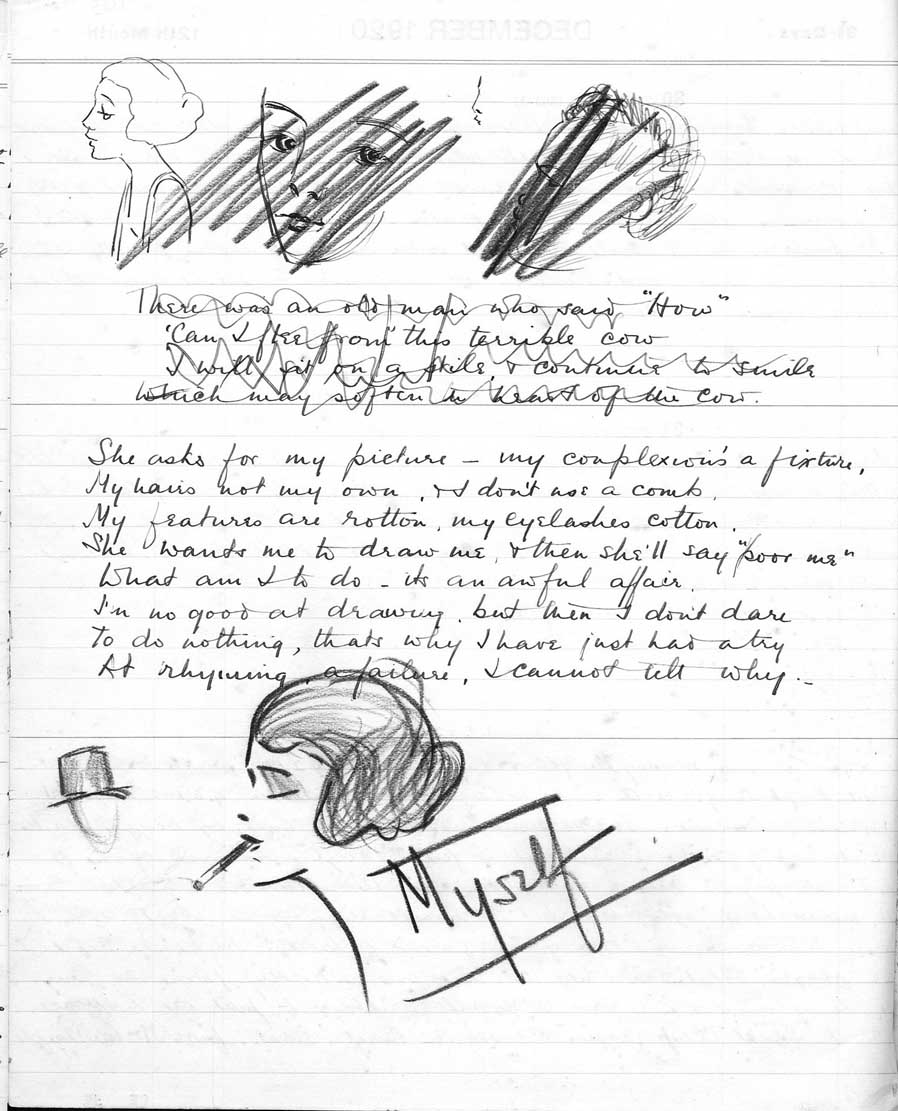 There was an old man who said "How"
'Can I flee from' this terrible cow
I will sit on a stile, & continue to smile
Which may soften the heart of the cow.
She asks for my picture – my complexion's a fixture,
My hairs not my own, & I don't use a comb,
My features are rotton, my eyelashes cotton.
She wants me to draw me, & then she'll say "poor me"
What am I to do – its an awful affair.
I'm no good at drawing, but then I don't dare
To do nothing, thats why I have just had a try
At rhyming, a failure, I cannot tell why –
Myself